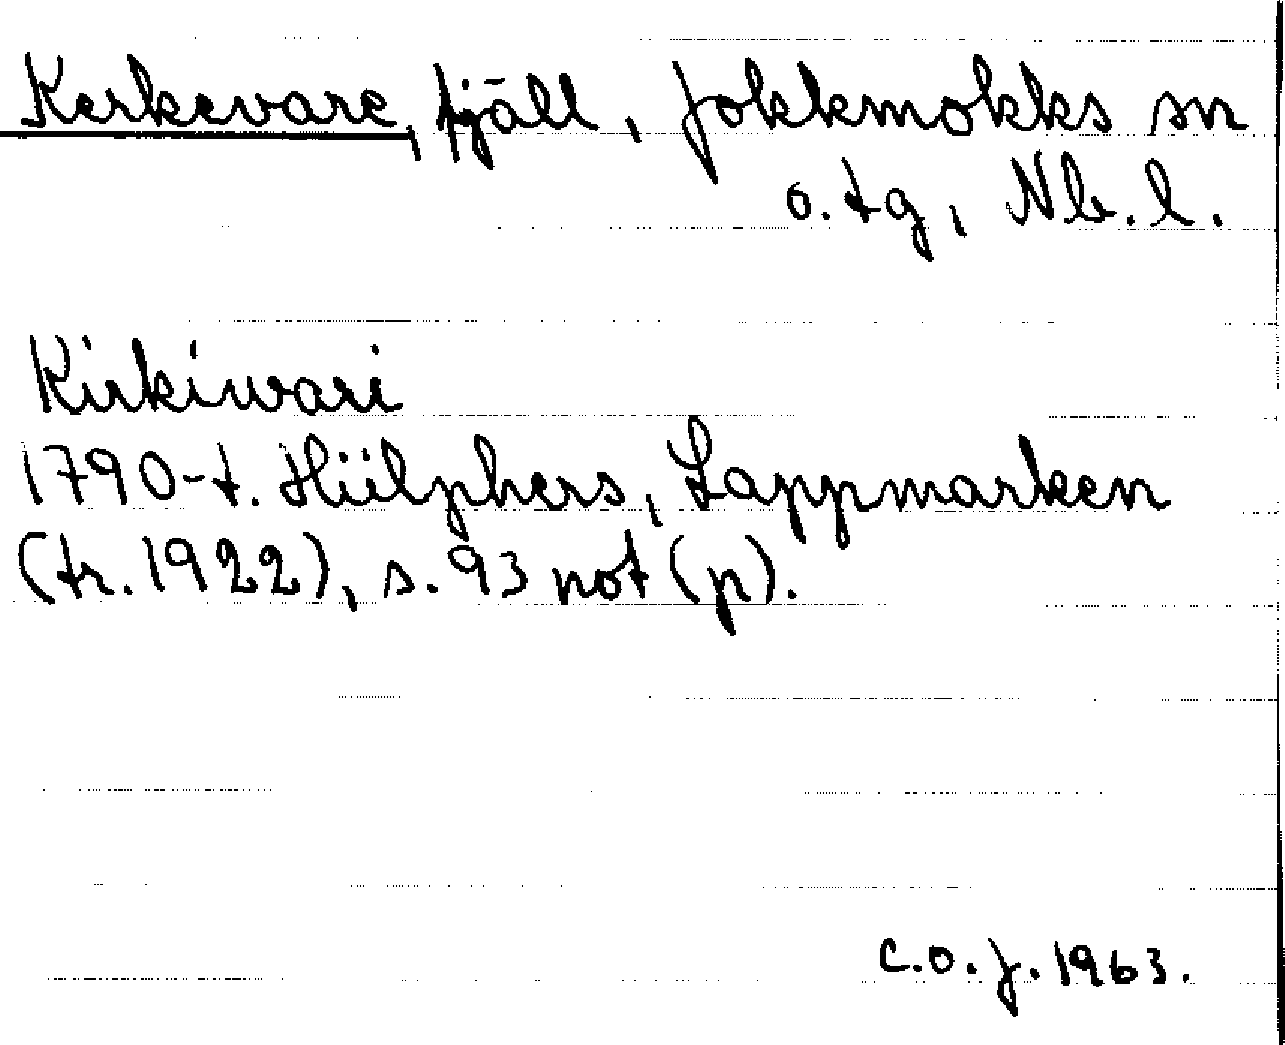 Kerkevare, fjäll, Jokkmokks sn
o. tg, Nb. l.
Kirkiwari
1790-t. Hülphers, Lappmarken
(tr. 1922), s. 93 not (p).
C.O.J. 1963.